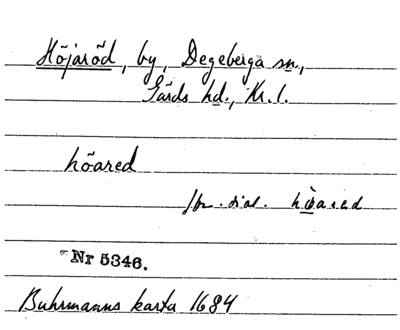 Höjaröd, by, Degeberga sn.,
Gärds hd., Kr. l.
höared
jfr. dial. höared
Nr 5346.
Buhrmanns karta 1684